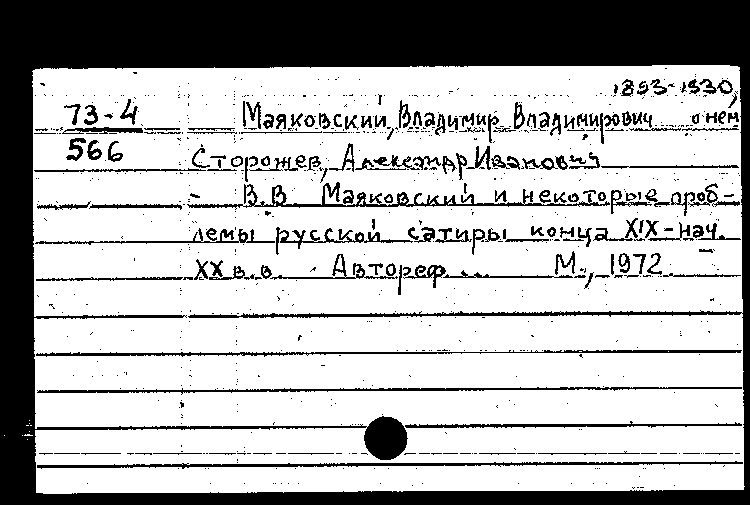 1893-1930,
73-4 Маяковский, Владимир Владимирович о нем
566 Сторожев, Александр Иванович
- В.В. Маяковский и некоторые проб-
лемы русской сатиры конца XIX-нач.
XX в.в. Автореф ... М., 1972